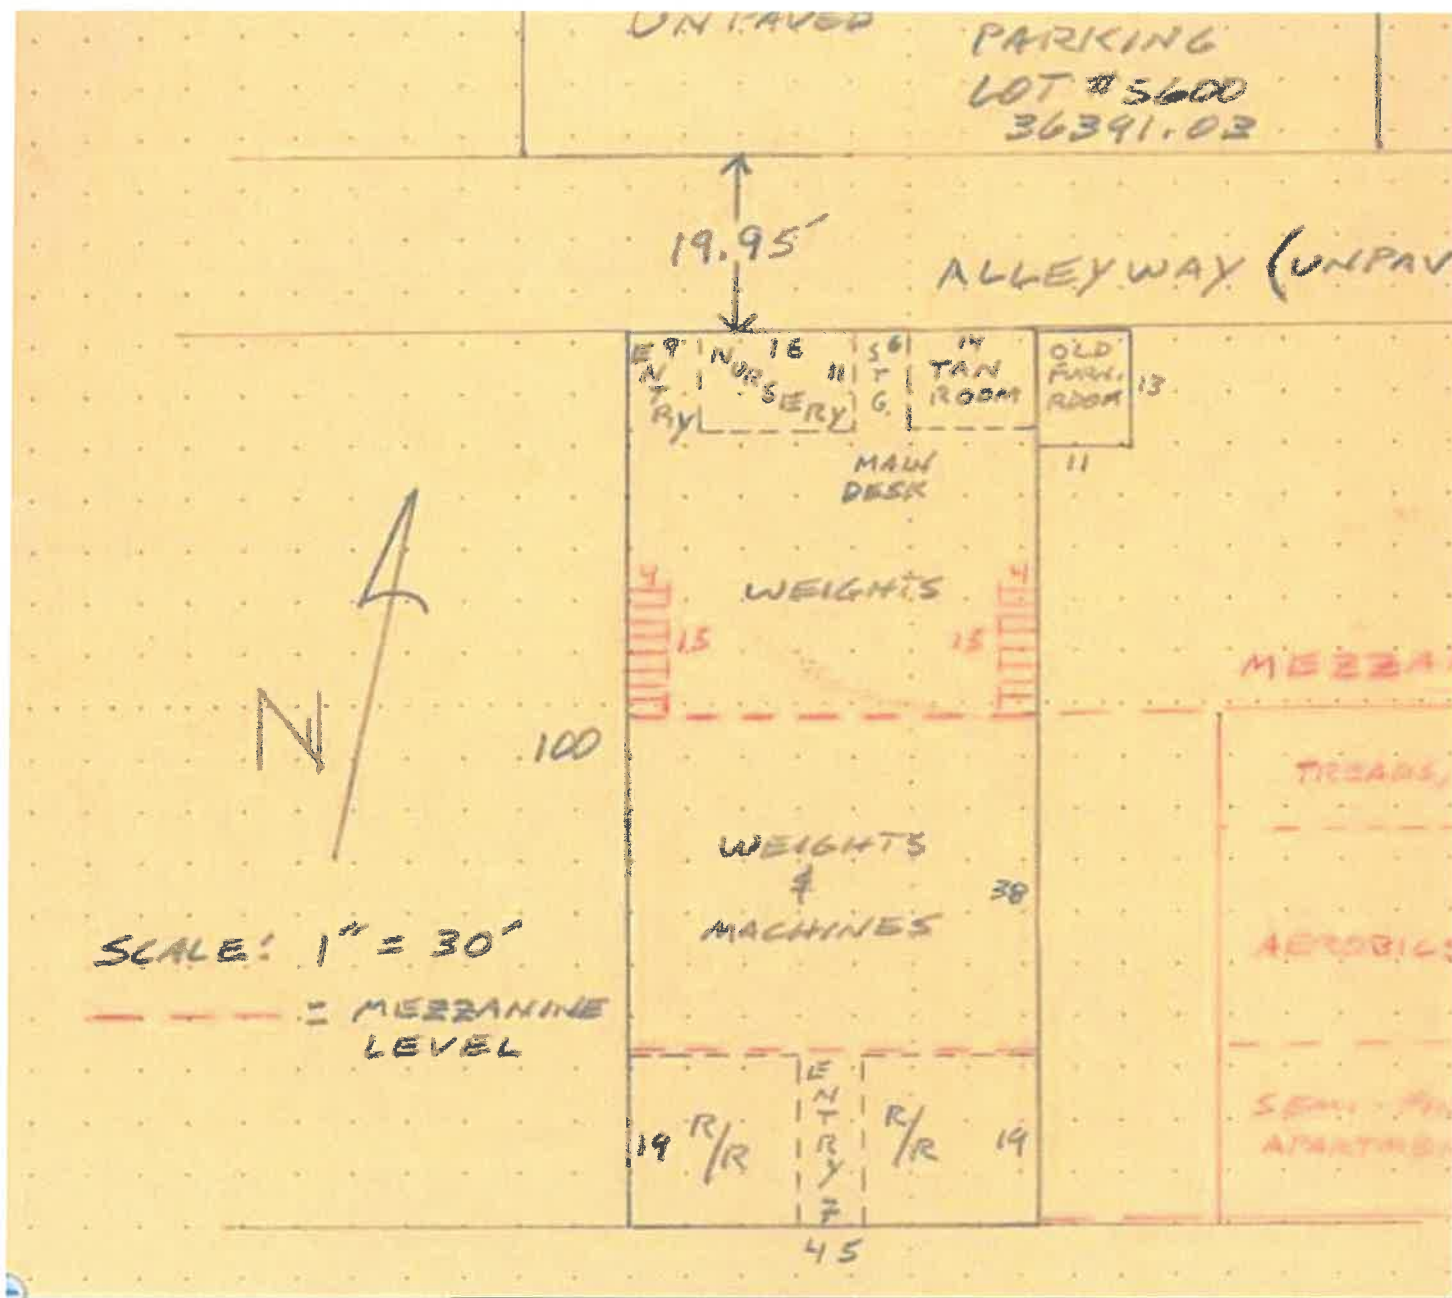 UNPAVED
PARKING
LOT #5600
36391.03
19.95'
ALLEYWAY (UNPAV
ENTRY
9
NURSERY
16
11
STG.
6
14
TAN
ROOM
OLD
FURN.
ROOM
13
11
MAIN
DESK
4
WEIGHTS
4
15
15
MEZZA
N
100
TREADS,
WEIGHTS
&
MACHINES
38
SCALE: 1" = 30'
AEROBICS
= MEZZANINE
LEVEL
ENTRY
7
19
R/R
R/R
19
SEMI-
APARTMEN
45